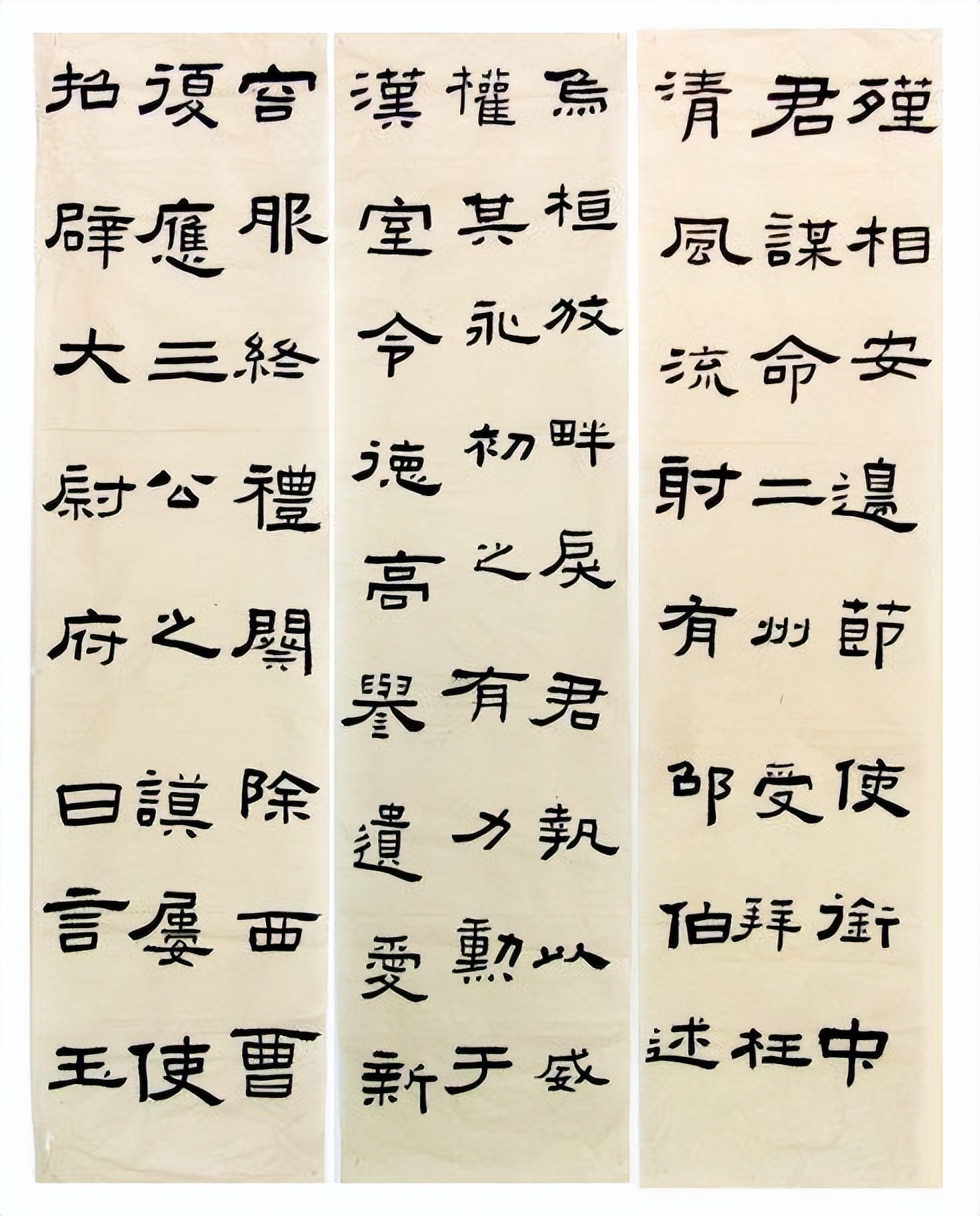 殣相安邊節使銜中
君謀命二州受拜枉
清風流射有邵伯述
烏桓狡畔戾君執以威
權其永初之有力勳于
漢室令德高譽遺愛新
容服終禮闋除西曹
復應三公之謨屢使
招辟大尉府曰言玉